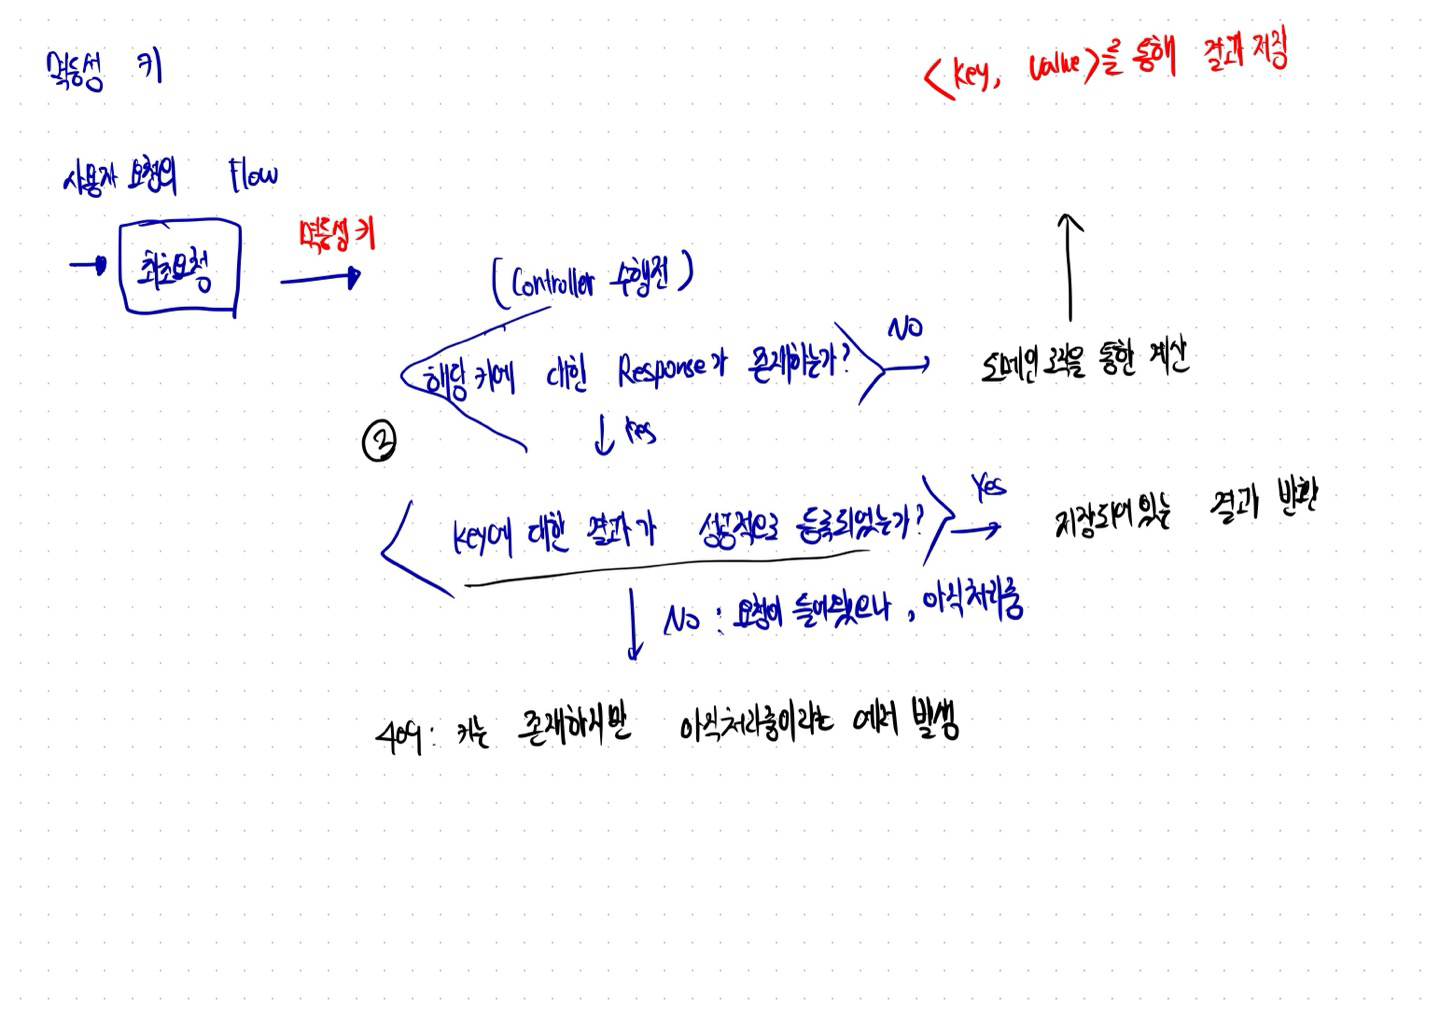 멱등성 키
<key, value>를 통해 결과 저장
사용자 요청의 Flow
최초요청
멱등성 키
(Controller 수행전)
해당 키에 대한 Response가 존재하는가?
NO
도메인 로직을 통한 계산
Yes
②
key에 대한 결과가 성공적으로 등록되었는가?
Yes
저장되어있는 결과 반환
No : 요청이 들어왔으나, 아직처리중
409: 키는 존재하지만 아직처리중이라는 에러 발생